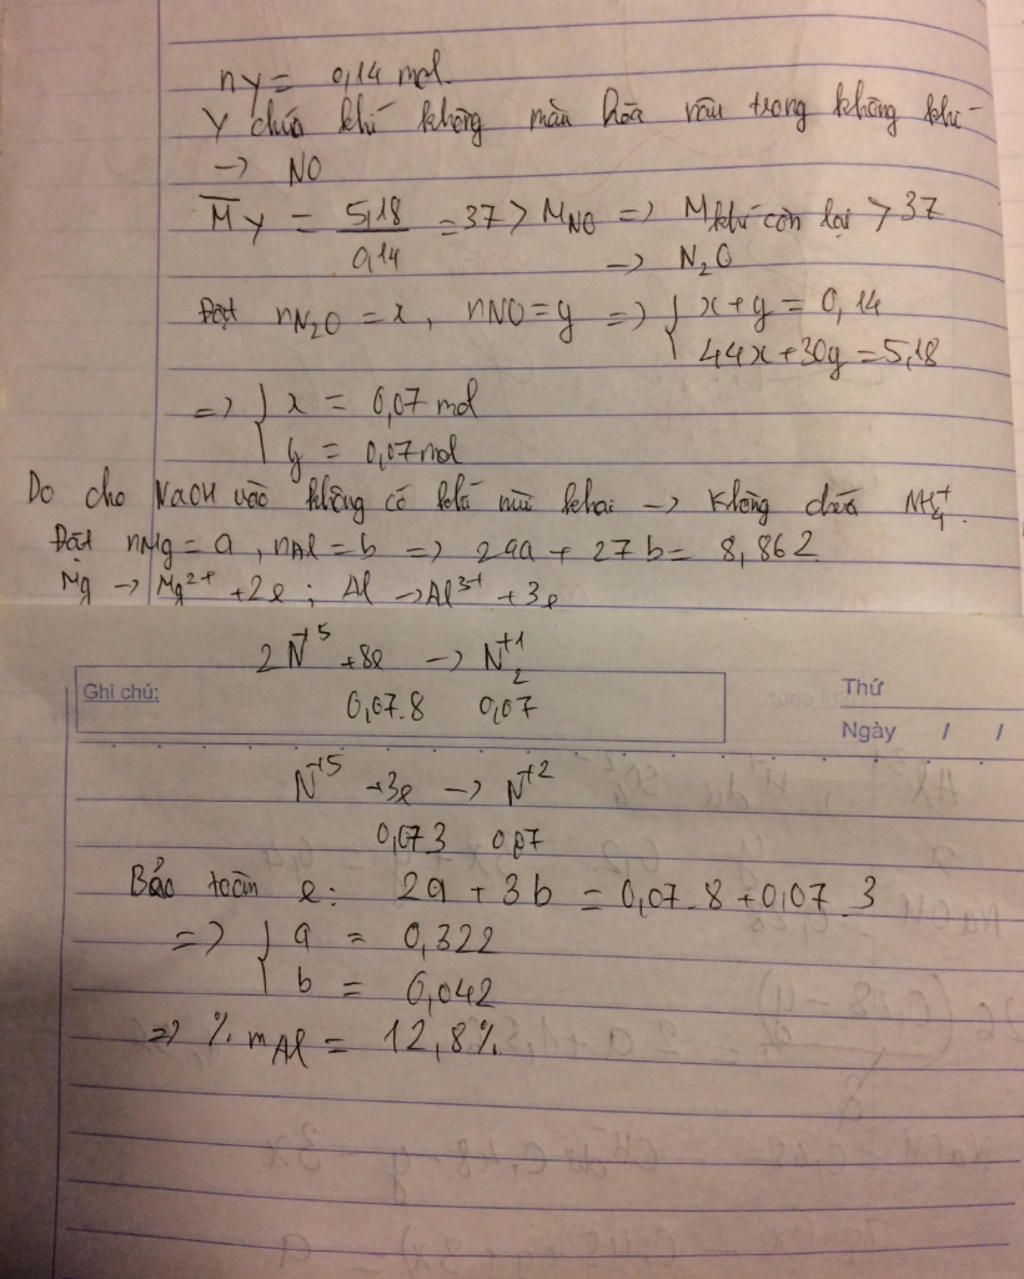 nY = 0,14 mol.
Y chứa khí không màu hóa nâu trong không khí
→ NO
M̅Y = 5,18 / 0,14 = 37 > MNO => Mkhí còn lại > 37
→ N2O
Đặt nN2O = x, nNO = y => { x + y = 0,14
44x + 30y = 5,18
=> { x = 0,07 mol
y = 0,07 mol
Do cho NaOH vào không có khí mùi khai → Không chứa NH4+.
Đặt nMg = a, nAl = b => 24a + 27b = 8,862
Mg → Mg2+ + 2e ; Al → Al3+ + 3e
2N+5 + 8e → N2+1
Ghi chú:
Thứ
0,07.8 0,07
Ngày / /
N+5 + 3e → N+2
0,07.3 0,07
Bảo toàn e: 2a + 3b = 0,07.8 + 0,07.3
=> { a = 0,322
b = 0,042
=> % mAl = 12,8%